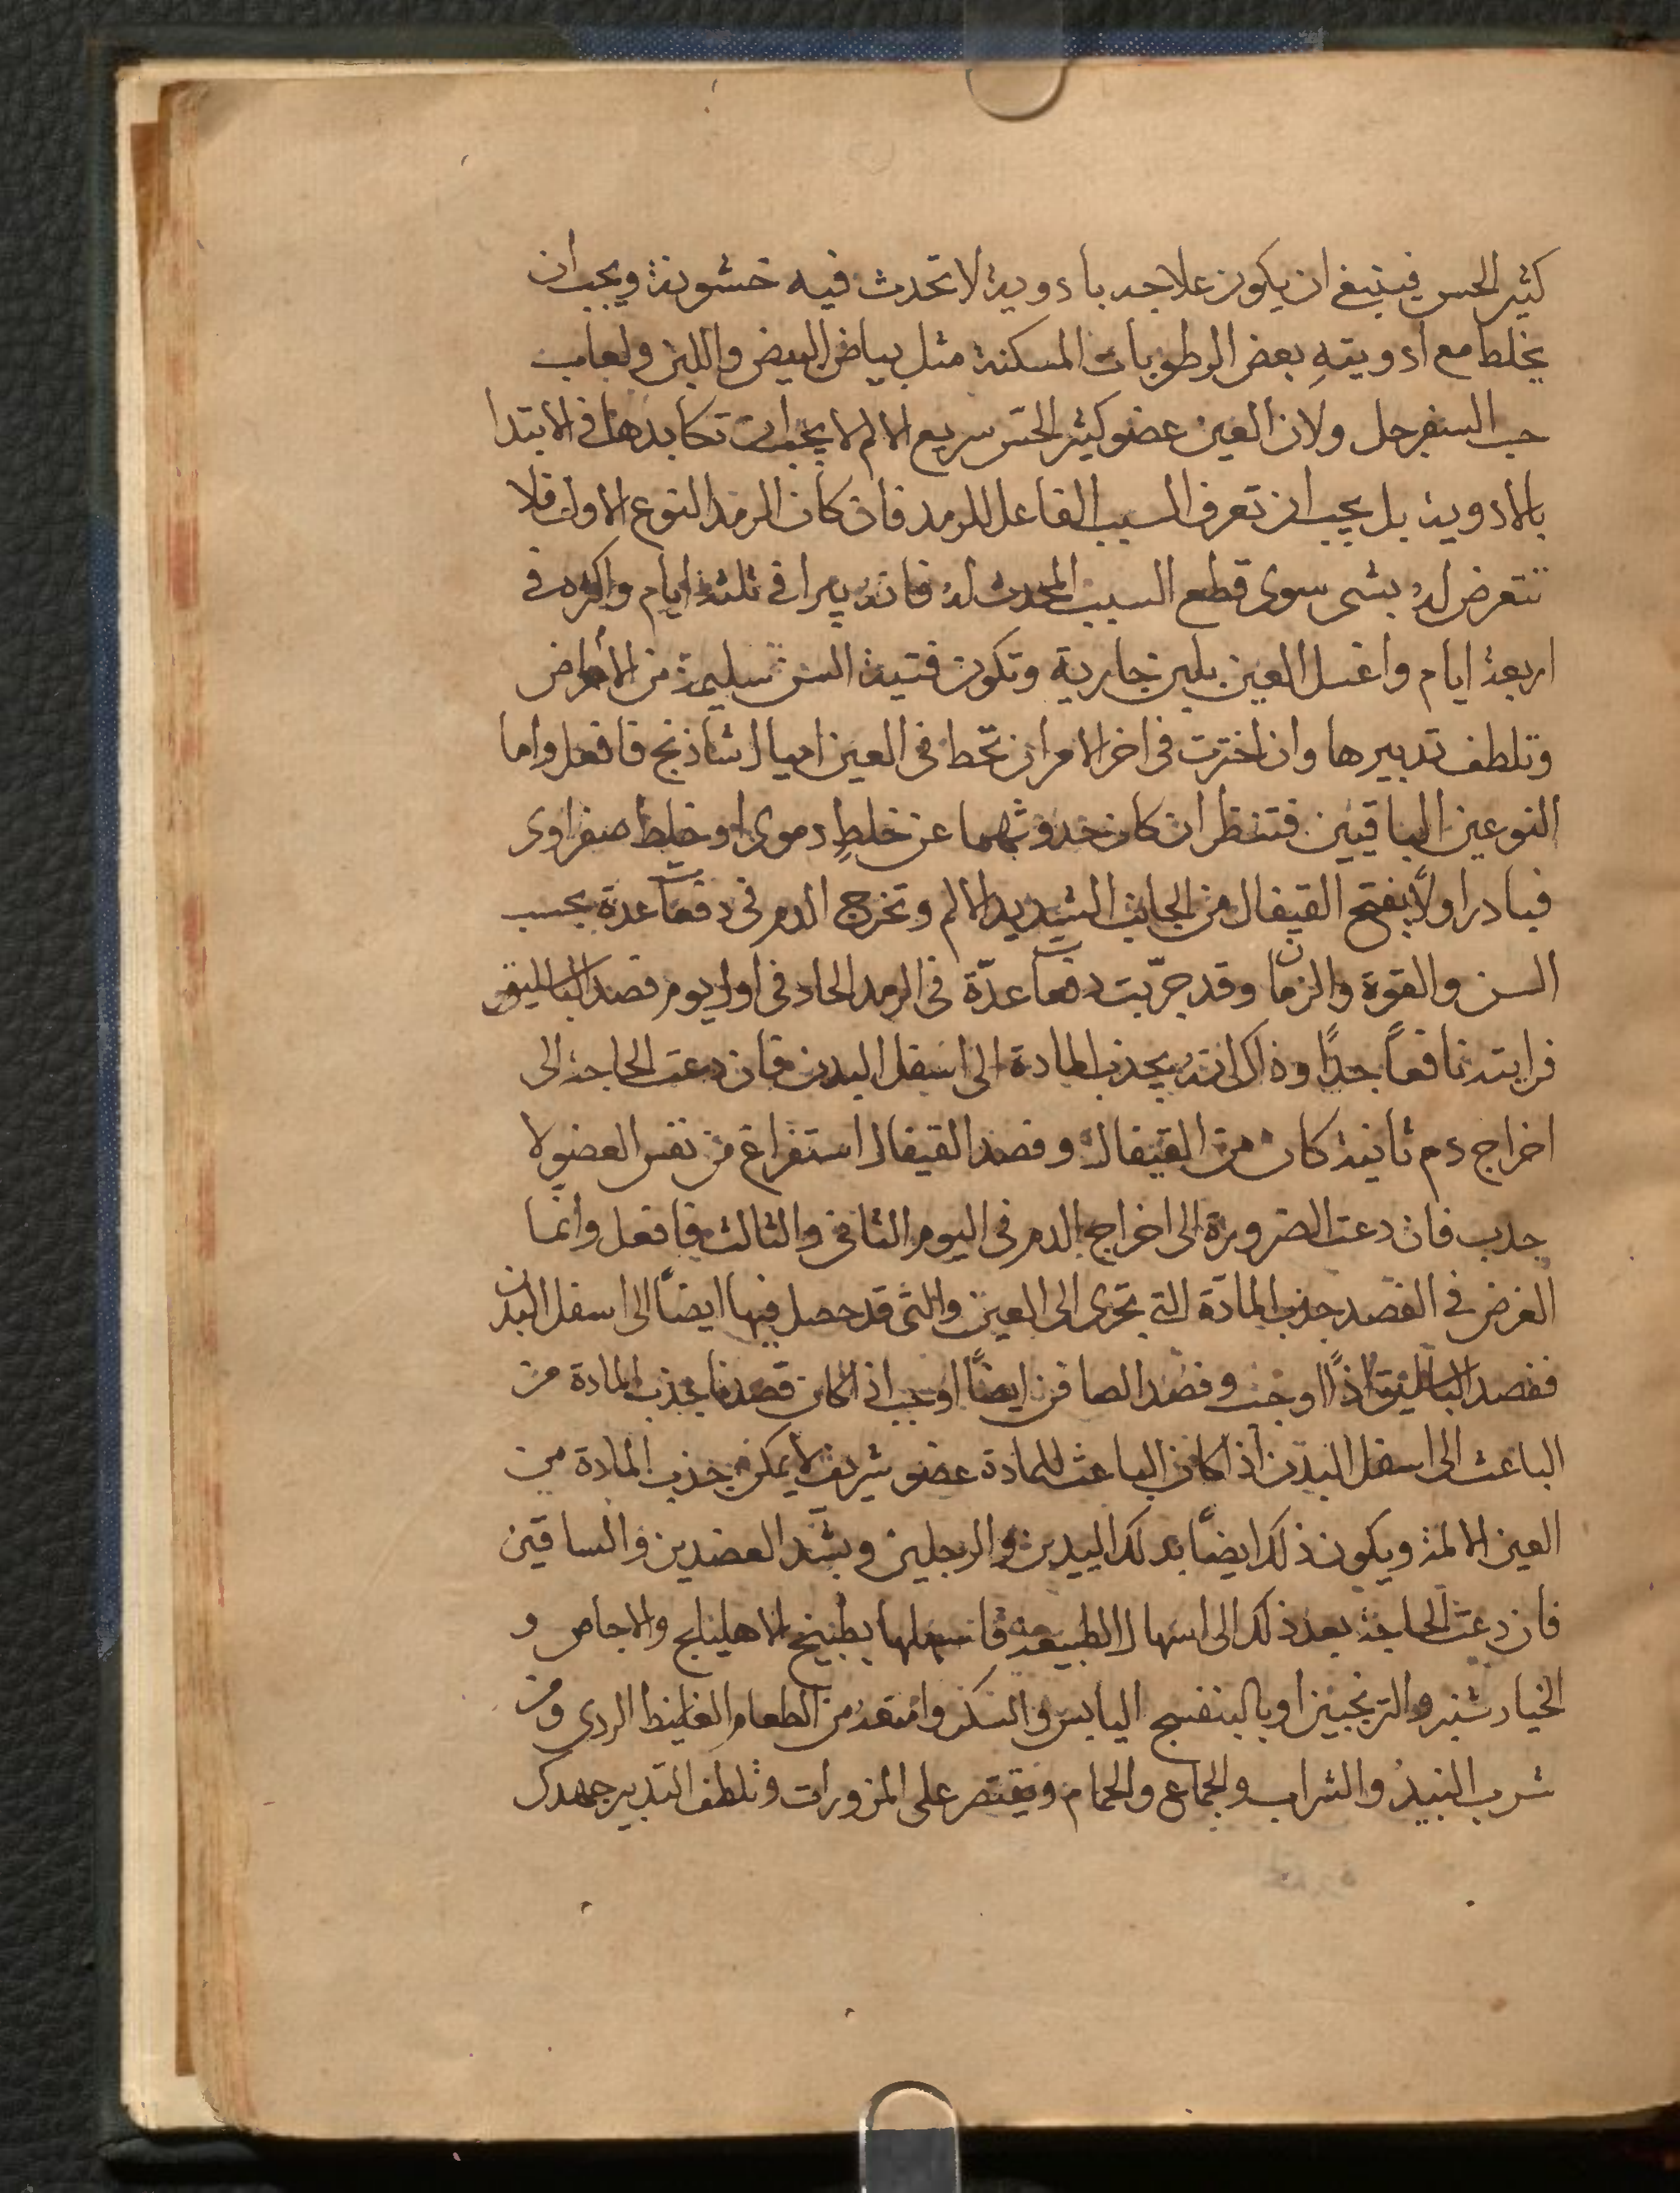 كثير الحس فينبغى ان يكون علاجه بادوية لا تحدث فيه خشونة ويجب ان
يخلط مع ادويتهِ بعض الرطوبات المسكنة مثل بياض البيض واللبن ولعاب
حب السفرجل ولان العين عضو كثير الحسّ سريع الالم لا يجب ان تكابدها فى الابتدا
بالادوية بل يجب ان تعرف السبب الفاعل للرمد فان كان الرمد النوع الاول فلا
تتعرض لهُ بشى سوى قطع السبب المحدث لهُ فانهُ يبرا فى ثلثة ايام واكثره فى
اربعة ايام واغسل العين بلبن جارية وتكون فتية السن سليمة من الأمراض
وتلطف تدبيرها وان اخترت فى اخر الامر ان تحّط فى العين اميال شاذنج فافعل واما
النوعين الباقيين فتنظر ان كان حدوثهما عن خلطٍ دموى او خلط صفراوى
فبادر اولاً بفتح القيفال من الجانب الشديد الالم وتخرج الدم فى دفعات عدة بحسب
السن والقوة والزمان وقد جرّبت دفعات عدّة فى الرمد الحاد فى اول يوم فصد الباسليق
فرايته نافعاً جدًا وذاك انهُ يجذب المادة الى اسفل البدن فان دعت الحاجة الى
اخراج دم ثانية كان من القيفال وفصد القيفال استفراغ من نفس العضو لا
جدب فان دعت الضرورة الى اخراج الدم فى اليوم الثانى والثالث فافعل وانما
الغرض فى الفصد جذب المادّة التى تجرى الى العين والتى قد حصل فيها ايضاً الى اسفل البدن
ففصد الباسليق اذًا اوجب وفصد الصافن ايضاً اوجب اذ اكان قصدنا بجذب المادة من
الباعث الى اسفل البدن اذ اكان الباعث للمادة عضو شريف لا يمكن جذب المادة من
العين الالمة ويكون ذلك ايضاً بدلك اليدين والرجلين وبشّد العضدين والساقين
فان دعت الحاجة بعد ذلك الى اسهال الطبيعة فاسهلها بطبيخ الاهليلج والاجاص و
الخيارشنبر والترنجبين او بالبنفسج اليابس والسكر وامنعه من الطعام الغليظ الردى ومن
شرب النبيذ والشراب والجماع والحمام ويقتصر على المزورات وتلطف التدبير جهدك